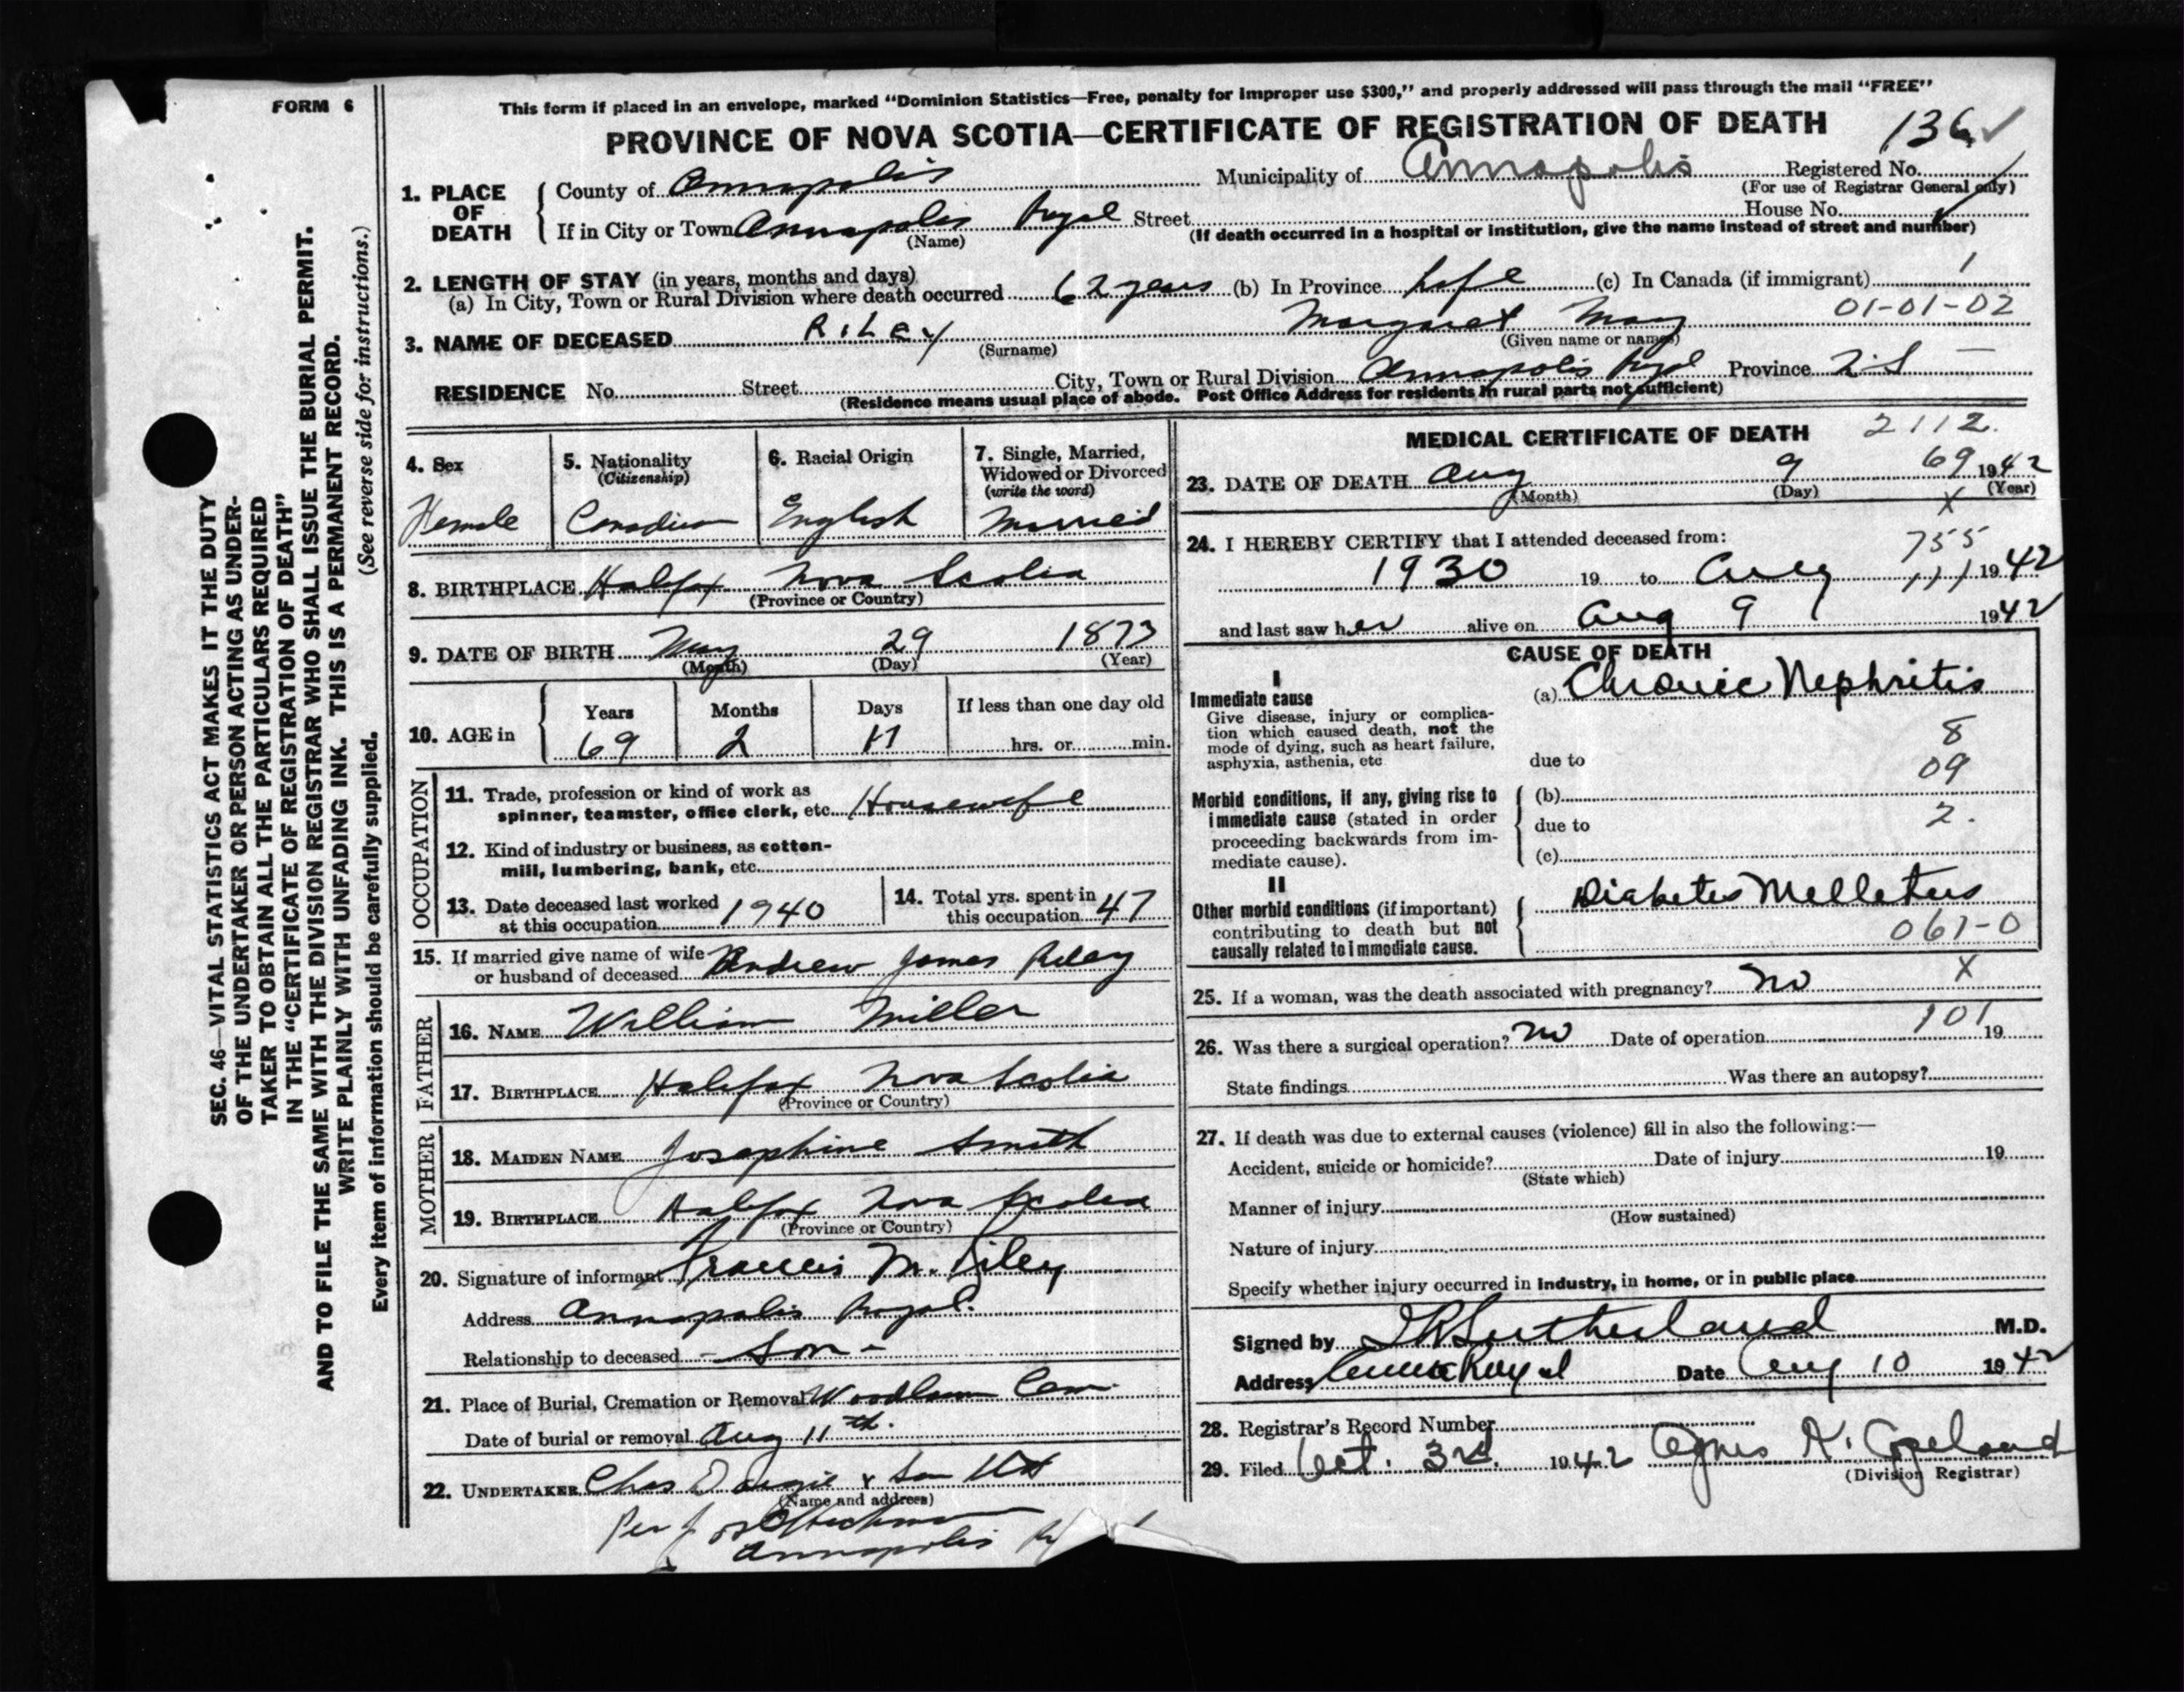 FORM 6
This form if placed in an envelope, marked "Dominion Statistics—Free, penalty for improper use $300," and properly addressed will pass through the mail "FREE"
PROVINCE OF NOVA SCOTIA—CERTIFICATE OF REGISTRATION OF DEATH 136 ✓
1. PLACE OF DEATH
County of Annapolis Municipality of Annapolis Registered No.
(For use of Registrar General only)
House No.
If in City or Town Annapolis Royal Street
(Name) (If death occurred in a hospital or institution, give the name instead of street and number)
2. LENGTH OF STAY (in years, months and days)
(a) In City, Town or Rural Division where death occurred 62 years (b) In Province Life (c) In Canada (if immigrant) 1
01-01-02
3. NAME OF DECEASED RILEY Margaret May
(Surname) (Given name or names)
RESIDENCE No. Street City, Town or Rural Division Annapolis Royal Province N-S —
(Residence means usual place of abode. Post Office Address for residents in rural parts not sufficient)
4. Sex
Female
5. Nationality
(Citizenship)
Canadian
6. Racial Origin
English
7. Single, Married,
Widowed or Divorced
(write the word)
Married
8. BIRTHPLACE Halifax Nova Scotia
(Province or Country)
9. DATE OF BIRTH May 29 1873
(Month) (Day) (Year)
10. AGE in
Years Months Days If less than one day old
69 2 11 hrs. or min.
OCCUPATION
11. Trade, profession or kind of work as
spinner, teamster, office clerk, etc. Housewife
12. Kind of industry or business, as cotton-
mill, lumbering, bank, etc.
13. Date deceased last worked
at this occupation 1940
14. Total yrs. spent in
this occupation 47
15. If married give name of wife
or husband of deceased Andrew James Riley
FATHER
16. NAME William Miller
17. BIRTHPLACE Halifax Nova Scotia
(Province or Country)
MOTHER
18. MAIDEN NAME Josephine Smith
19. BIRTHPLACE Halifax Nova Scotia
(Province or Country)
20. Signature of informant Francis M. Riley
Address Annapolis Royal.
Relationship to deceased - Son -
21. Place of Burial, Cremation or Removal Woodlawn Cem
Date of burial or removal Aug 11th.
22. UNDERTAKER Chas Dargie & Son Ltd
(Name and address)
Per
Annapolis
MEDICAL CERTIFICATE OF DEATH 2112.
69
23. DATE OF DEATH Aug 9 1942
(Month) (Day) (Year)
X
24. I HEREBY CERTIFY that I attended deceased from:
755
1930 19 to Aug 111 1942
and last saw her alive on Aug 9 1942
CAUSE OF DEATH
I
Immediate cause
Give disease, injury or complica-
tion which caused death, not the
mode of dying, such as heart failure,
asphyxia, asthenia, etc
(a) Chronic Nephritis
8
due to 09
Morbid conditions, if any, giving rise to
immediate cause (stated in order
proceeding backwards from im-
mediate cause).
(b)
due to 2.
(c)
II
Other morbid conditions (if important)
contributing to death but not
causally related to immediate cause.
Diabetes Melletus
061-0
X
25. If a woman, was the death associated with pregnancy? No
101
26. Was there a surgical operation? No Date of operation 19
State findings Was there an autopsy?
27. If death was due to external causes (violence) fill in also the following:—
Accident, suicide or homicide? Date of injury 19
(State which)
Manner of injury
(How sustained)
Nature of injury
Specify whether injury occurred in industry, in home, or in public place
Signed by Sutherland M.D.
Address Anna Royal Date Aug 10 1942
28. Registrar's Record Number
29. Filed Oct. 3rd. 1942 Agnes K. Copeland
(Division Registrar)
SEC. 46—VITAL STATISTICS ACT MAKES IT THE DUTY
OF THE UNDERTAKER OR PERSON ACTING AS UNDER-
TAKER TO OBTAIN ALL THE PARTICULARS REQUIRED
IN THE "CERTIFICATE OF REGISTRATION OF DEATH"
AND TO FILE THE SAME WITH THE DIVISION REGISTRAR WHO SHALL ISSUE THE BURIAL PERMIT.
WRITE PLAINLY WITH UNFADING INK. THIS IS A PERMANENT RECORD.
Every item of information should be carefully supplied. (See reverse side for instructions.)